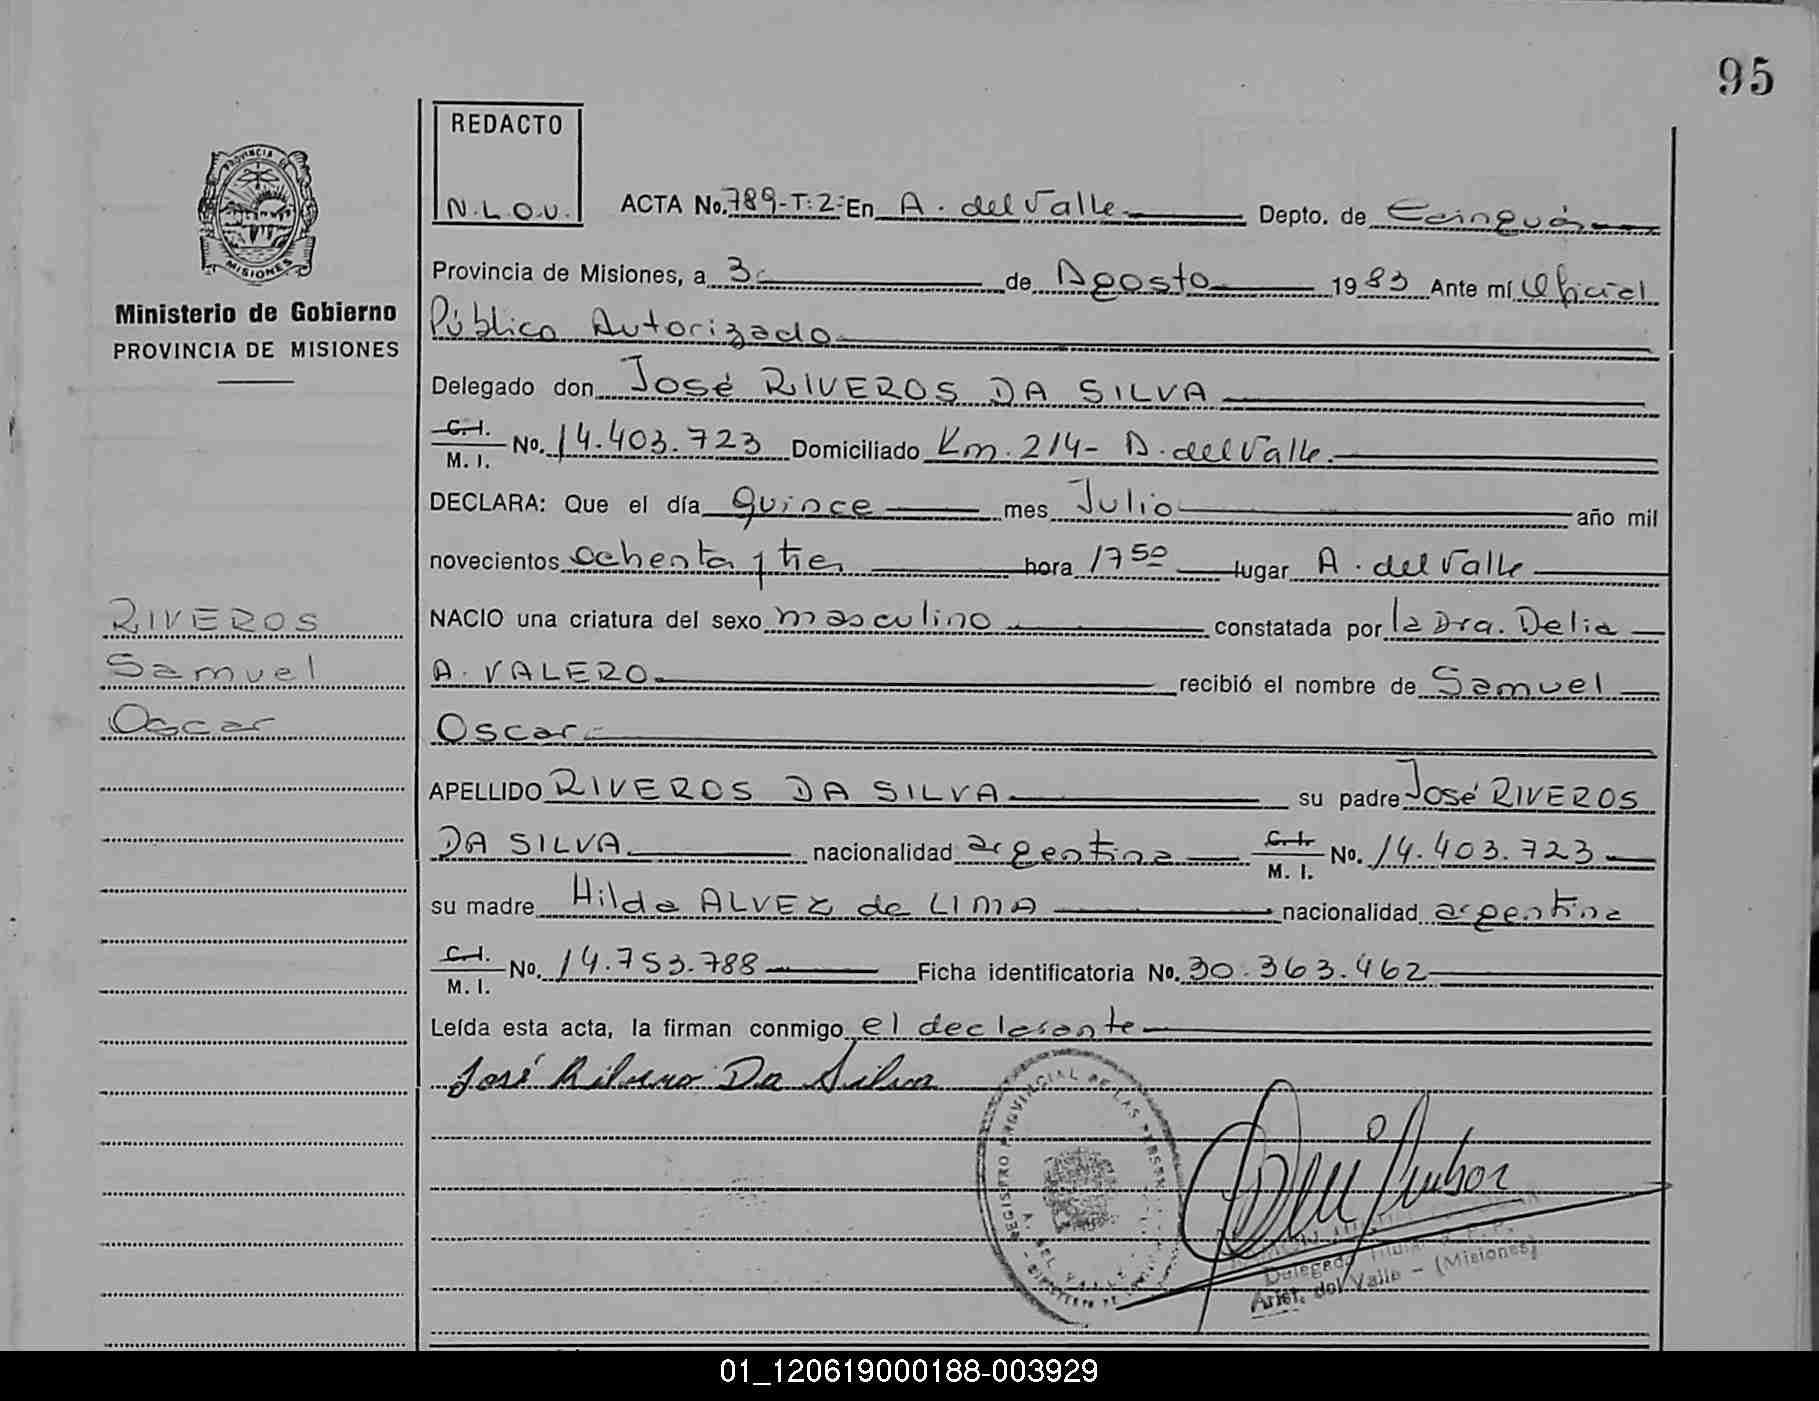 95
REDACTO
N.L.O.V.
PROVINCIA DE
MISIONES
Ministerio de Gobierno
PROVINCIA DE MISIONES
ACTA No. 789-T:2: En A. del Valle Depto. de Cainguás
Provincia de Misiones, a 3 de Agosto 1983 Ante mí Oficial
Público Autorizado
Delegado don José RIVEROS DA SILVA
C.I. M. I. No. 14.403.723 Domiciliado Km. 214- A. del Valle.
DECLARA: Que el día quince mes Julio año mil
novecientos ochenta y tres hora 17 50 lugar A. del Valle
RIVEROS
Samuel
Oscar
NACIO una criatura del sexo masculino constatada por la Dra. Delia
A. VALERO recibió el nombre de Samuel
Oscar
APELLIDO RIVEROS DA SILVA su padre José RIVEROS
DA SILVA nacionalidad argentina C.I. M. I. No. 14.403.723
su madre Hilda ALVEZ de LIMA nacionalidad argentina
C.I. M. I. No. 14.753.788 Ficha identificatoria No. 30.363.462
Leída esta acta, la firman conmigo el declarante
José Rivero Da Silva
REGISTRO PROVINCIAL DE LAS PERSONAS
A. DEL VALLE
Delegado Titular R. P. P.
Arist. del Valle - (Misiones)
01_120619000188-003929